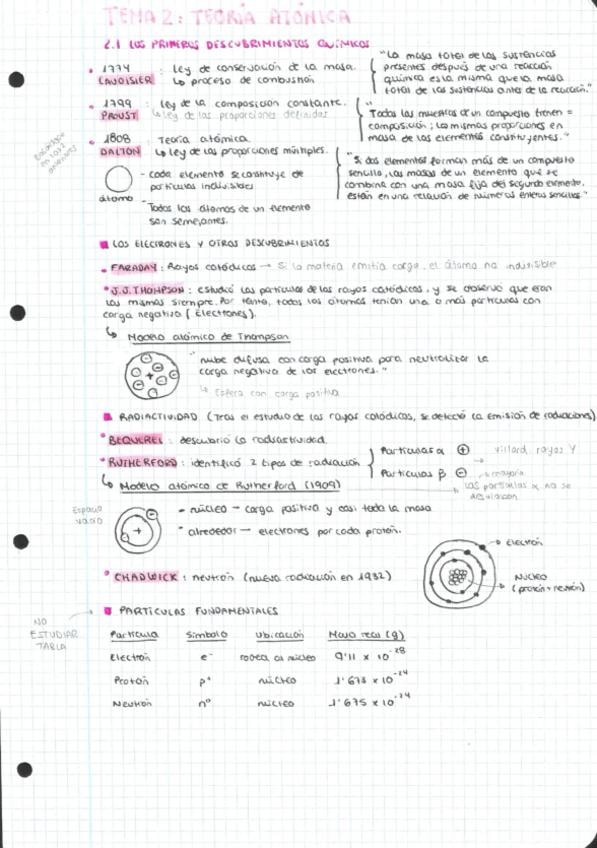 TEMA 2: TEORÍA ATÓMICA
2.1 LOS PRIMEROS DESCUBRIMIENTOS QUÍMICOS
• 1774 : Ley de conservación de la masa.
LAVOISIER ↳ proceso de combustión.
"La masa total de las sustancias
presentes después de una reacción
química es la misma que la masa
total de las sustancias antes de la reacción."
• 1799 : Ley de la composición constante.
PROUST ↳ Ley de las proporciones definidas
"Todas las muestras de un compuesto tienen =
composición; las mismas proporciones en
masa de los elementos constituyentes."
• 1808 : Teoría atómica.
DALTON ↳ Ley de las proporciones múltiples.
"Si dos elementos forman más de un compuesto
sencillo, las masas de un elemento que se
combina con una masa fija del segundo elemento,
están en una relación de números enteros sencillos."
átomo
- Cada elemento se constituye de
partículas indivisibles
- Todos los átomos de un elemento
son semejantes.
LOS ELECTRONES Y OTROS DESCUBRIMIENTOS
• FARADAY: Rayos catódicos → Si la materia emitía carga, el átomo no indivisible
• J.J. THOMPSON: estudió las partículas de los rayos catódicos, y se observó que eran
las mismas siempre. Por tanto, todos los átomos tenían una o más partículas con
carga negativa (Electrones).
↳ Modelo atómico de Thompson
"nube difusa con carga positiva para neutralizar la
carga negativa de los electrones."
↳ Esfera con carga positiva
RADIACTIVIDAD (Tras el estudio de los rayos catódicos, se detectó la emisión de radiaciones)
• BEQUEREL: descubrió la radiactividad
• RUTHERFORD: identificó 2 tipos de radiación
Partículas α +
Villard, rayos γ
Partículas β -
→ mayoría
las partículas α no se
desviaron
↳ Modelo atómico de Rutherford (1909)
Espacio
vacío
- núcleo - carga positiva y casi toda la masa
- alrededor - electrones por cada protón.
• CHADWICK: neutrón (nueva radiación en 1932)
Electrón
NÚCLEO
(protón + neutrón)
PARTÍCULAS FUNDAMENTALES
NO
ESTUDIAR
TABLA
Partícula Símbolo Ubicación Masa real (g)
Electrón e⁻ rodea al núcleo 9'11 x 10⁻²⁸
Protón p⁺ núcleo 1'673 x 10⁻²⁴
Neutrón n⁰ núcleo 1'675 x 10⁻²⁴